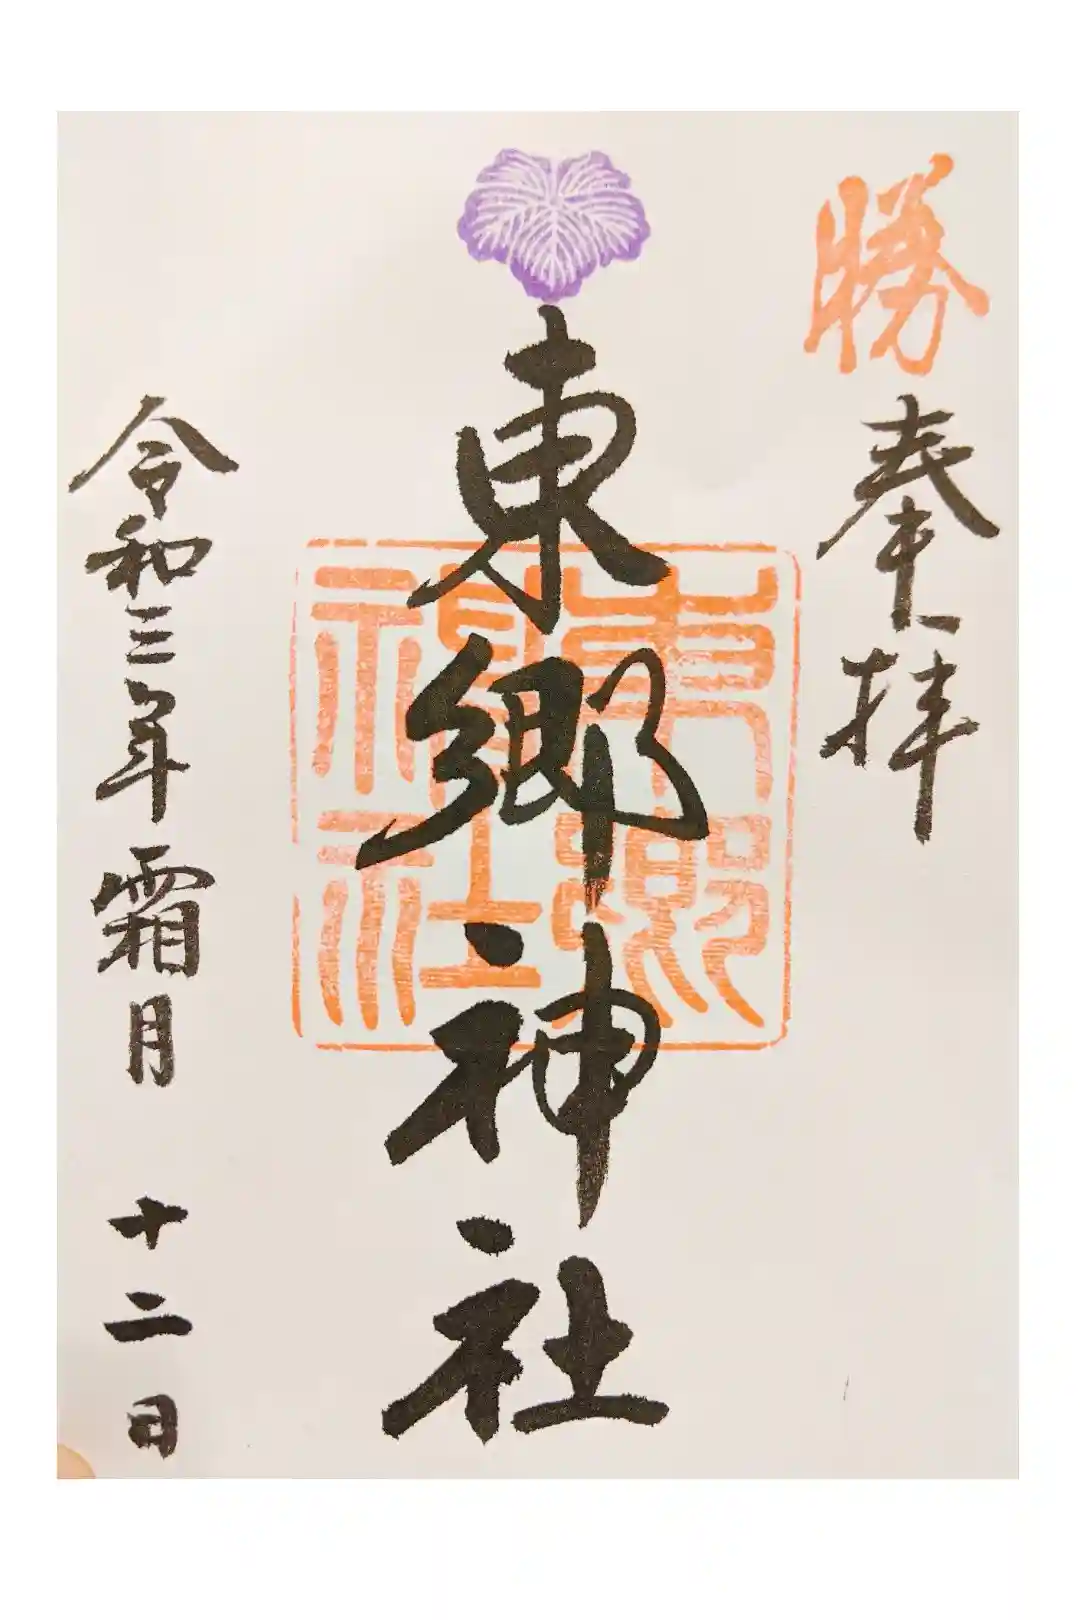 勝
奉拝
東郷神社
東郷
神社
令和三年霜月 十二日